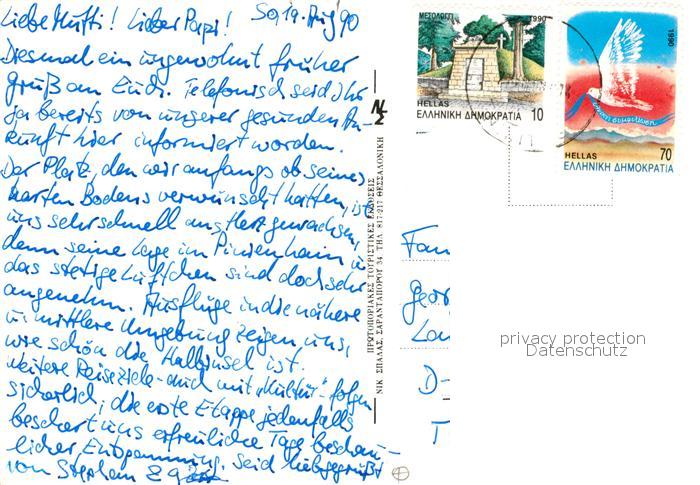 Liebe Mutti! Lieber Papi! So, 19. Aug 90
Diesmal ein ungewohnt früher
Gruß an Euch. Telefonisch seid Ihr
ja bereits von unserer gesunden An-
kunft hier informiert worden.
Der Platz, den wir anfangs ob seines
harten Bodens verwünscht hatten, ist
uns sehr schnell ans Herz gewachsen,
denn seine Lage im Pinienhain u
das stetige Lüftchen sind doch sehr
angenehm. Ausflüge in die nähere
u. mittlere Umgebung zeigen uns,
wie schön die Halbinsel ist.
Weitere Reiseziele auch mit "Kultur" folgen
sicherlich; die erste Etappe jedenfalls
beschert uns erfreuliche Tage beschau-
licher Entspannung. Seid liebgegrüßt
von Stephan
ΠΡΩΤΟΠΟΡΙΑΚΕΣ ΤΟΥΡΙΣΤΙΚΕΣ ΕΚΔΟΣΕΙΣ
ΝΙΚ ΣΠΑΛΑΣ, ΣΑΡΑΝΤΑΠΟΡΟΥ 34 ΤΗΛ 817-217 ΘΕΣΣΑΛΟΝΙΚΗ
ΝΣ
1990
HELLAS
ΕΛΛΗΝΙΚΗ ΔΗΜΟΚΡΑΤΙΑ 10
1990
HELLAS 70
ΕΛΛΗΝΙΚΗ ΔΗΜΟΚΡΑΤΙΑ
Fam
Geor
D-
T
privacy protection
Datenschutz